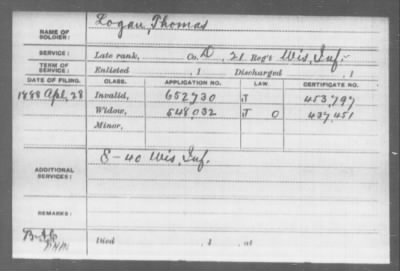 NAME OF SOLDIER: Logan, Thomas
SERVICE: Late rank, Co. D, 21 Reg't Wis. Inf.
TERM OF SERVICE: Enlisted , 1 Discharged , 1
DATE OF FILING. CLASS. APPLICATION NO. LAW. CERTIFICATE NO.
1888 Apl. 28 Invalid, 652,730 J 453,797
Widow, 548,032 J O 437,451
Minor,
ADDITIONAL SERVICES: E-40 Wis. Inf.
REMARKS:
Died , 1 , at